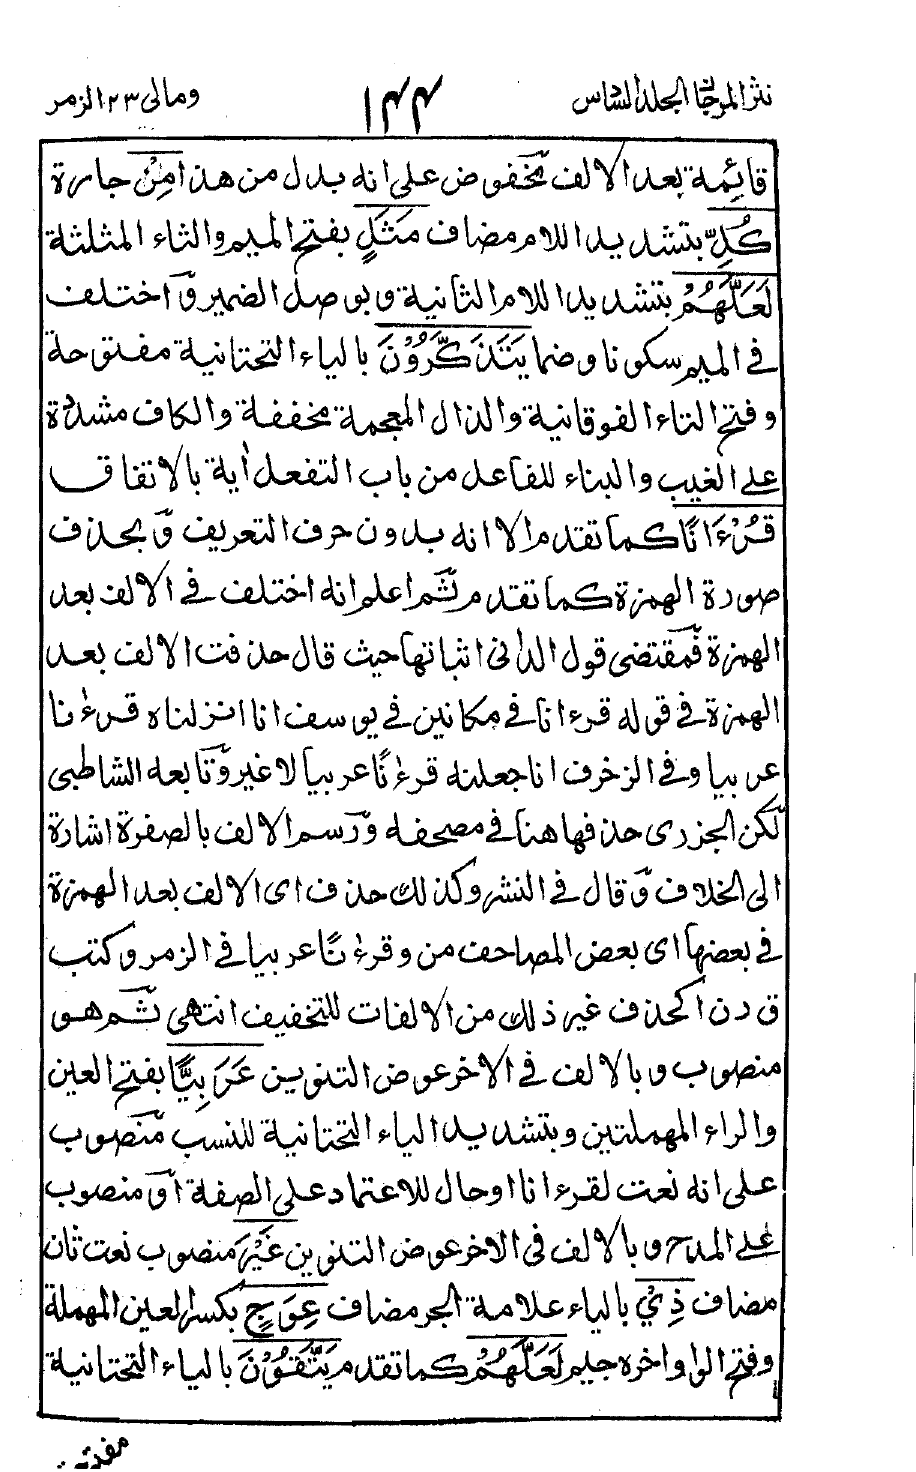 نثر المرجان الجلد السادس ١٤٤ ومالى ٢٣ الزمر
قائِمة بعد الالف مخفوض على انه بدل من هذا مِنْ جارة
كُلِّ بتشديد اللام مضاف مَثَلٍ بفتح الميم والثاء المثلثة
لَعَلَّهُمْ بتشديد اللام الثانية وبوصل الضمير وّاختلف
فى الميم سكونا وضما يَتَذَكَّرُوْنَ بالياء التحتانية مفتوحة
وفتح التاء الفوقانية والذال المعجمة مخففة والكاف مشددة
على الغيب والبناء للفاعل من باب التفعل أية بالاتفاق
قُرْءَانًا كما تقدم الا انه بدون حرف التعريف وّبحذف
صورة الهمزة كما تقدم ثّم اعلم انه اختلف فى الالف بعد
الهمزة فّمقتضى قول الدانى اثباتها حيث قال حذفت الالف بعد
الهمزة فى قوله قرءانا فى مكانين فى يوسف انا انزلناه قرءٰنا
عربيا وفى الزخرف انا جعلنه قرءٰنًا عربيا لا غير وّتابعه الشاطبى
لّكن الجزرى حذفها هنا فى مصحفه وّرسم الالف بالصفرة اشارة
الى الخلاف وّقال فى النشر وكذلك حذف اى الالف بعد الهمزة
فى بعضها اى بعض المصاحف من وقرءٰنًا عربيا فى الزمر وكتب
ق دن ا كحذف غير ذلك من الالفات للتخفيف انتهى ثّم هو
منصوب وبالالف فى الاخر عوض التنوين عَرَبِيًّا بفتح العين
والراء المهملتين وبتشديد الياء التحتانية للنسب مّنصوب
على انه نعت لقرءانا او حال للاعتماد على الصفة اوّ منصوب
على المدح وبالالف فى الاخر عوض التنوين غَيْرَ منصوب نعت ثان
مضاف ذِيْ بالياء علامة الجر مضاف عِوَجٍ بكسر العين المهملة
وفتح الواو اخره جيم لَعَلَّهُمْ كما تقدم يَتَّقُوْنَ بالياء التحتانية